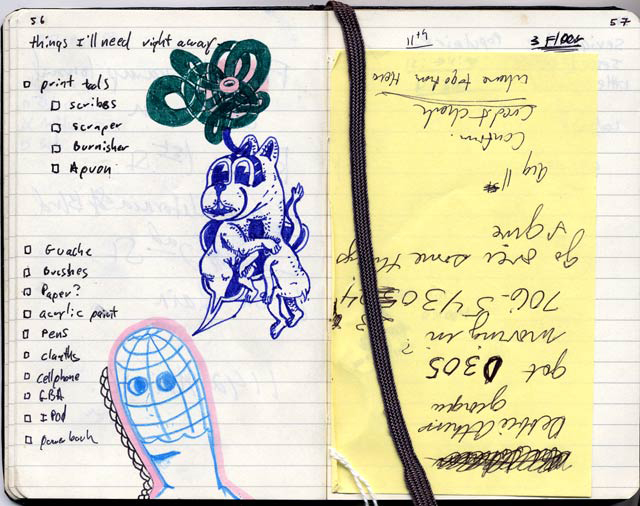 56
things I'll need right away
print tools
scribes
scraper
Burnisher
Apron
Guache
Brushes
Paper?
acrylic paint
Pens
cloths
cellphone
GBA
IPod
powerbook
57
3 Floor
4th
Debbie
georgia
got 0305
moving in?
706-543
go over some things
& give
Aug 11
Confirm.
Credit check
where to go from Here